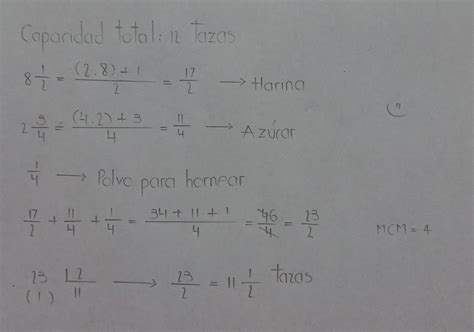 Capacidad total: 12 tazas
8 1/2 = (2.8)+1/2 = 17/2 → Harina
2 3/4 = (4.2)+3/4 = 11/4 → Azúcar
1/4 → Polvo para hornear
17/2 + 11/4 + 1/4 = 34+11+1/4 = 46/4 = 23/2 MCM = 4
23 |2 → 23/2 = 11 1/2 tazas
(1) 11